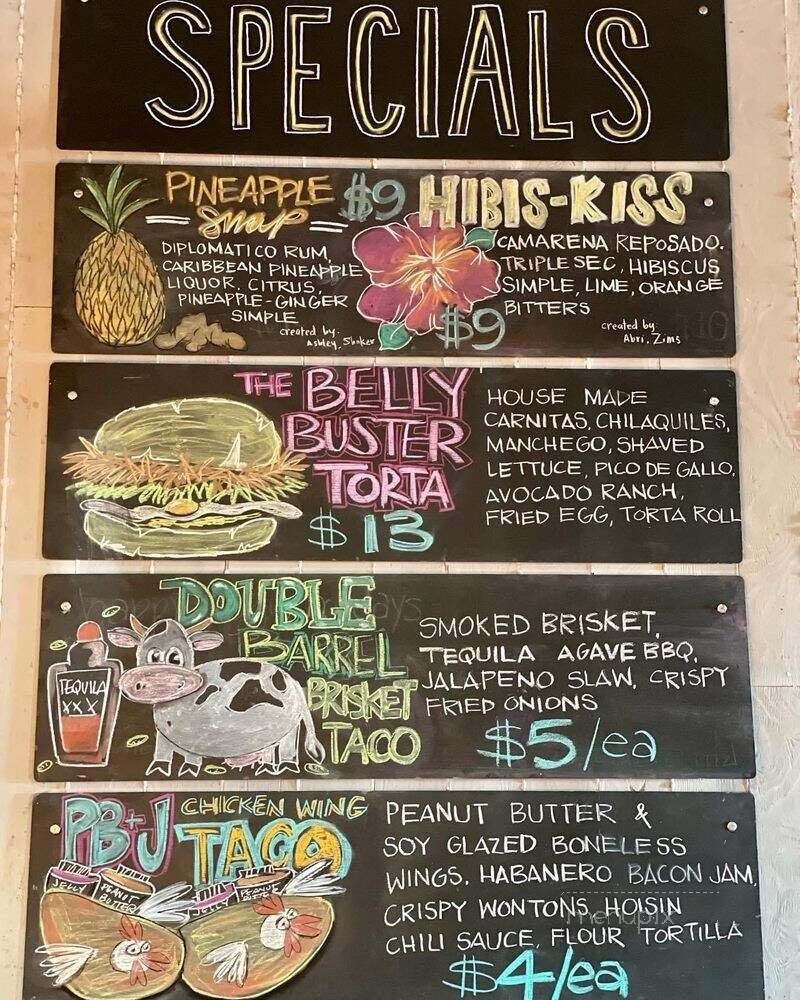 SPECIALS
PINEAPPLE
SNAP
$9
DIPLOMATICO RUM,
CARIBBEAN PINEAPPLE
LIQUOR, CITRUS,
PINEAPPLE-GINGER
SIMPLE
created by:
Ashley, Shaker
HIBIS-KISS
CAMARENA REPOSADO.
TRIPLE SEC, HIBISCUS
SIMPLE, LIME, ORANGE
BITTERS
$9
created by:
Abri, Zims
THE BELLY
BUSTER
TORTA
$13
HOUSE MADE
CARNITAS, CHILAQUILES,
MANCHEGO, SHAVED
LETTUCE, PICO DE GALLO,
AVOCADO RANCH,
FRIED EGG, TORTA ROLL
DOUBLE
BARREL
BRISKET
TACO
TEQUILA
XXX
SMOKED BRISKET,
TEQUILA AGAVE BBQ,
JALAPENO SLAW, CRISPY
FRIED ONIONS
$5/ea
PB+J CHICKEN WING
TACO
JELLY PEANUT
BUTTER
JELLY PEANUT
BUTTER
PEANUT BUTTER &
SOY GLAZED BONELESS
WINGS, HABANERO BACON JAM,
CRISPY WONTONS, HOISIN
CHILI SAUCE, FLOUR TORTILLA
$4/ea
menupix